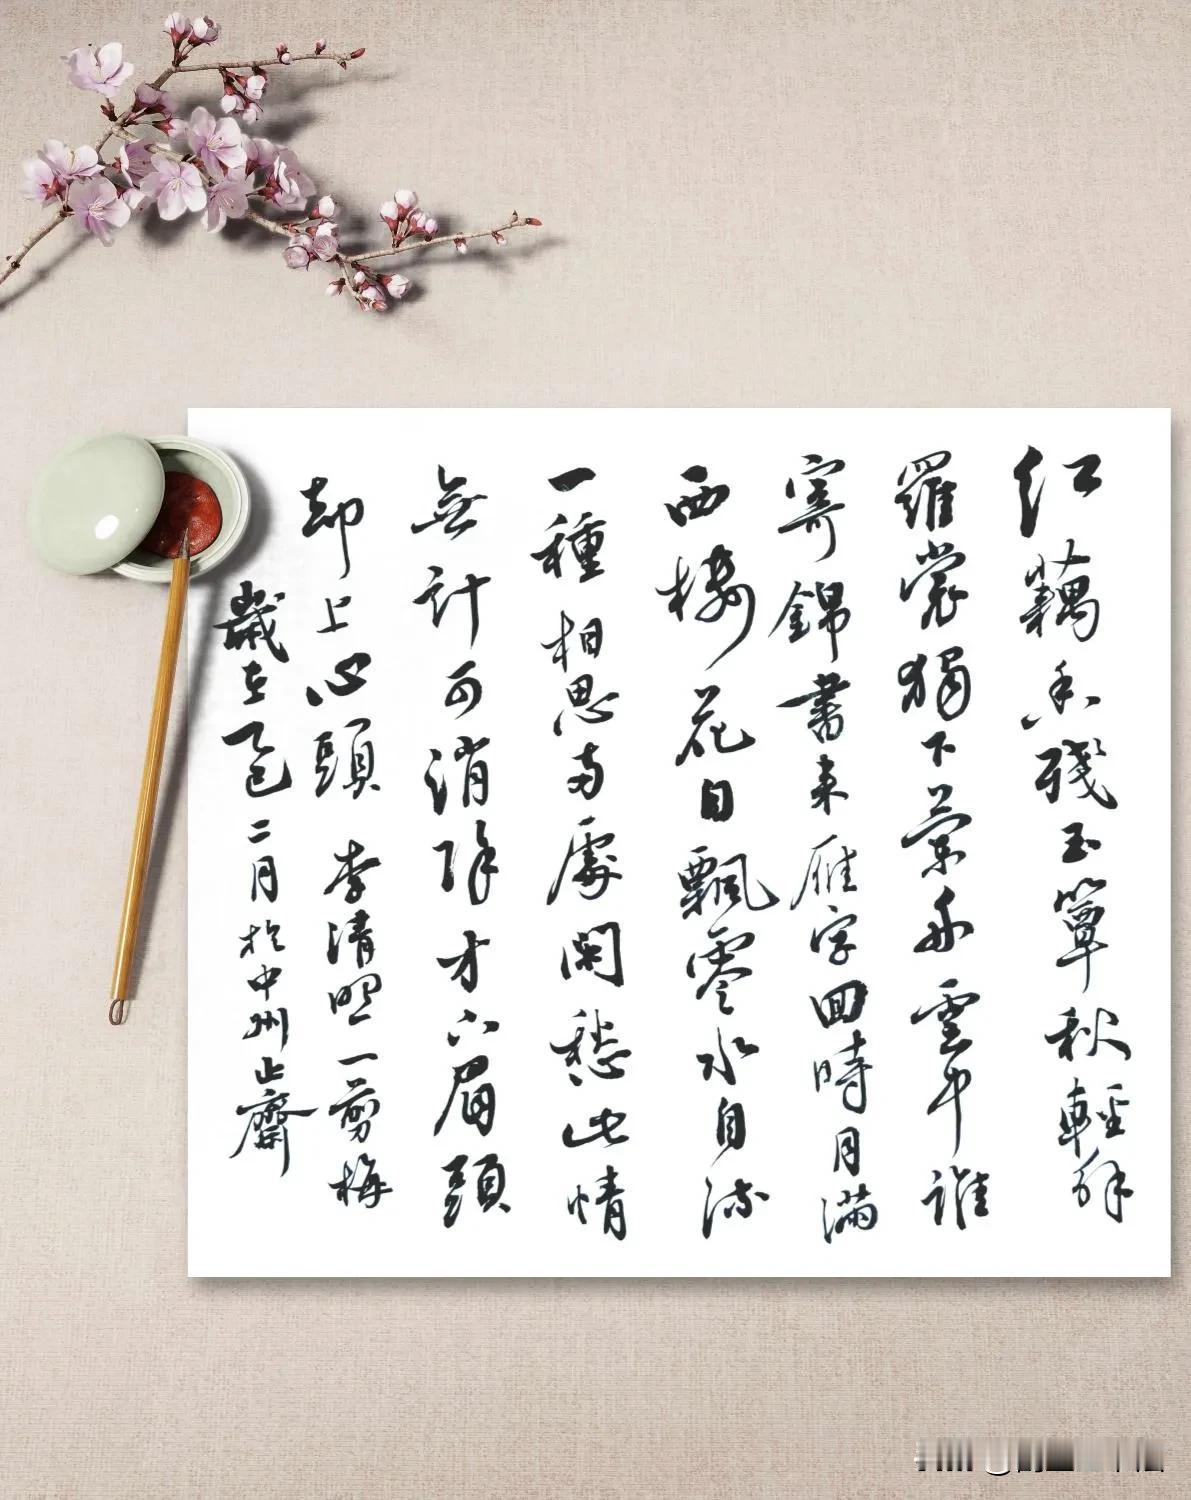 红藕香殘玉簟秋輕解
羅裳獨下蘭舟雲中誰
寄錦書来雁字回時月滿
西樓花自飄零水自流
一種相思両處閑愁此情
無計可消除才下眉頭
却上心頭 李清照一剪梅
歲在乙巳二月於中州止齋